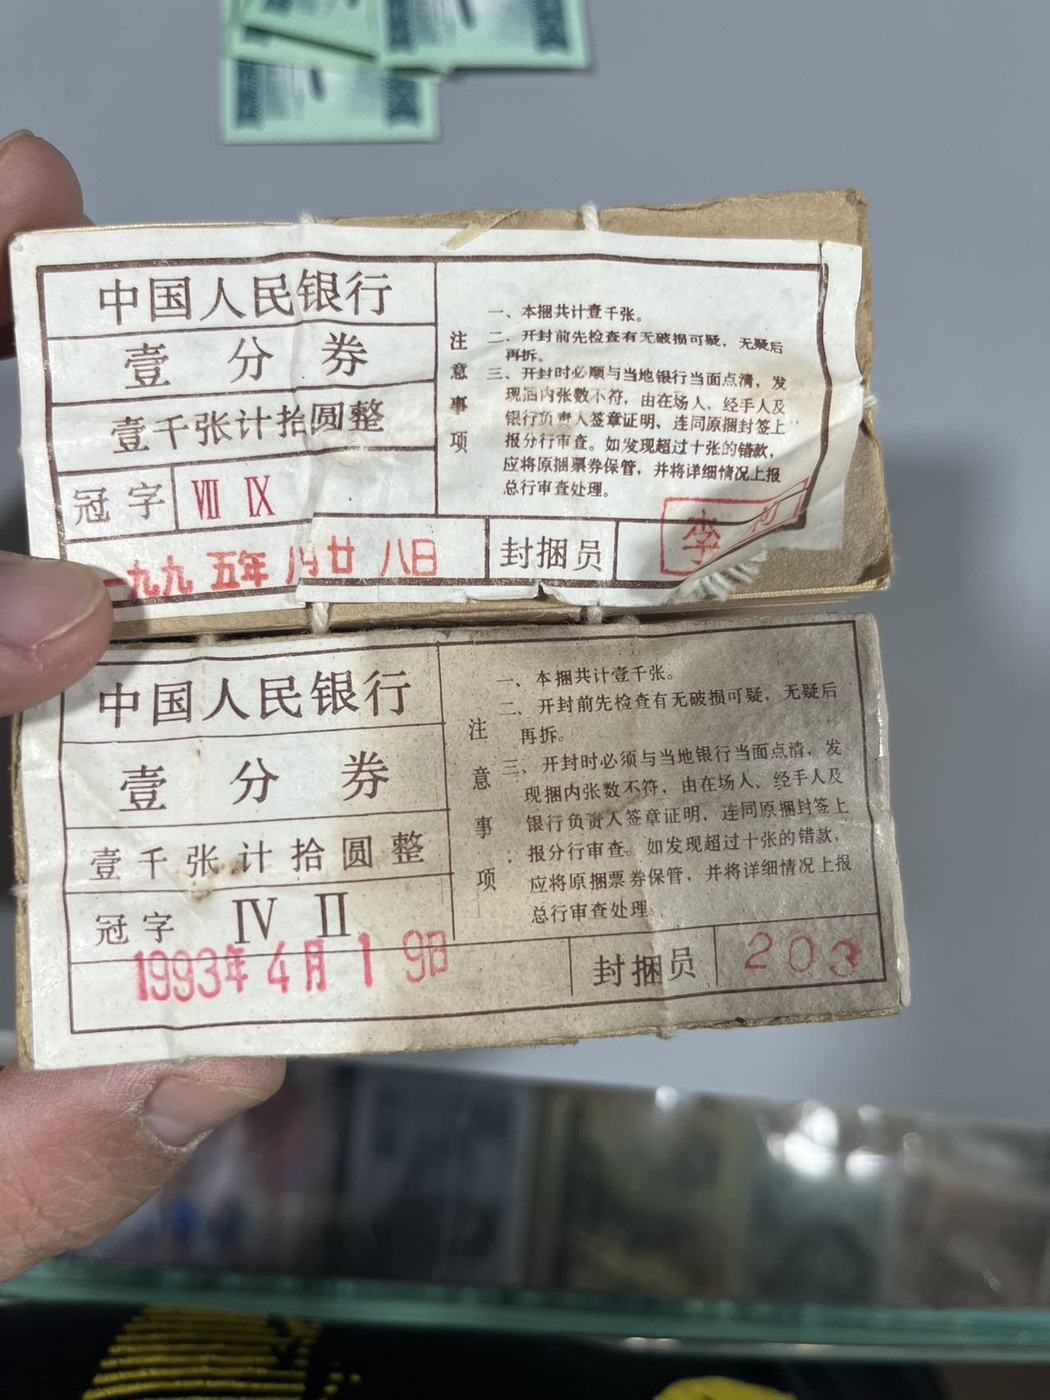 中国人民银行
壹分券
壹千张计拾圆整
冠字 Ⅶ Ⅸ
一九九五年 月廿八日
注意事项
一、本捆共计壹千张。
二、开封前先检查有无破损可疑，无疑后
再拆。
三、开封时必顺与当地银行当面点清，发
现捆内张数不符，由在场人、经手人及
银行负责人签章证明、连同原捆封签上
报分行审查。如发现超过十张的错款，
应将原捆票券保管，并将详细情况上报
总行审查处理。
封捆员
李
中国人民银行
壹分券
壹千张计拾圆整
冠字 Ⅳ Ⅱ
1993年4月19日
注意事项
一、本捆共计壹千张。
二、开封前先检查有无破损可疑，无疑后
再拆。
三、开封时必须与当地银行当面点清，发
现捆内张数不符，由在场人、经手人及
银行负责人签章证明，连同原捆封签上
报分行审查。如发现超过十张的错款，
应将原捆票券保管，并将详细情况上报
总行审查处理
封捆员
203